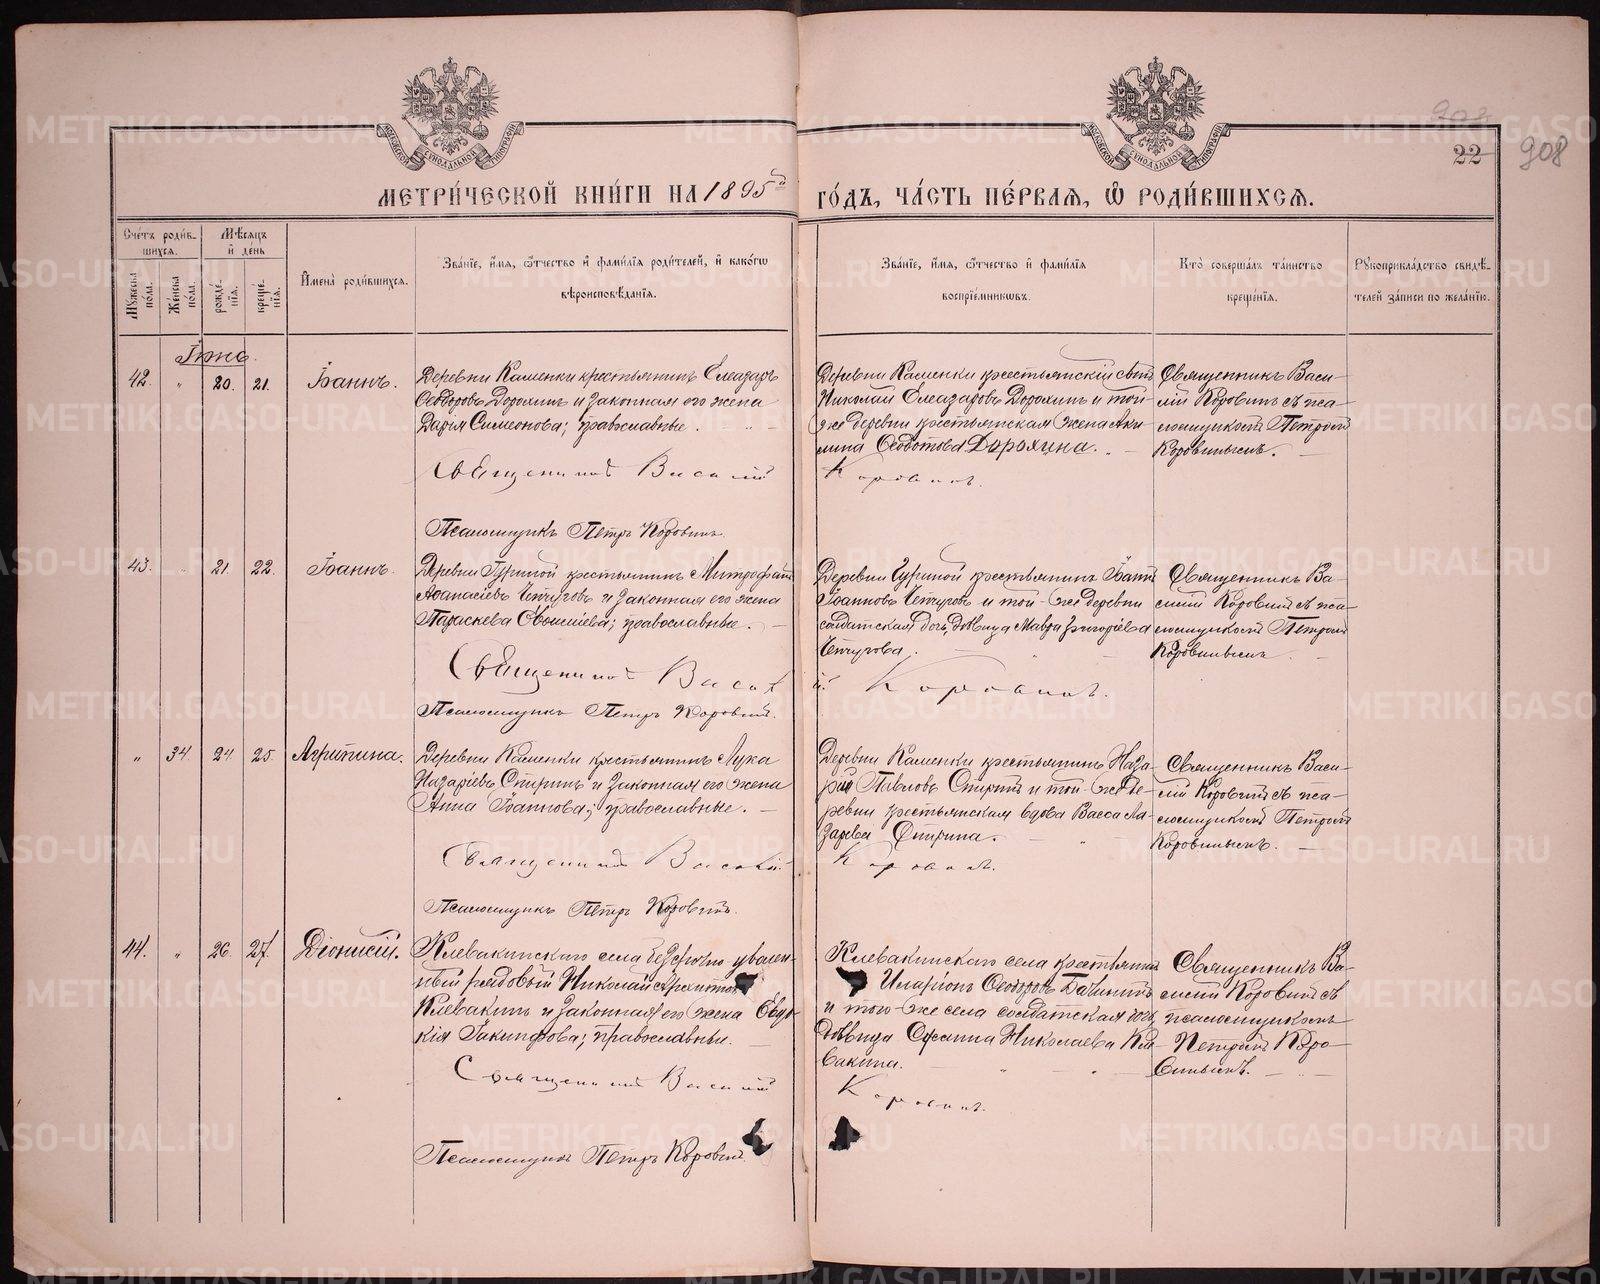 МЕТРИ́ЧЕСКОЙ КНИ́ГИ НА 1895й ГО́ДЪ, ЧА́СТЬ ПЕ́РВАЯ, Ѡ РОДИ́ВШИХСЯ.
22 908
Сче́тъ роди́вшихся.
Му́жеска по́ла.
Же́нска по́ла.
Мѣ́сяцъ и҆ де́нь
рожде́нїя.
креще́нїя.
И҆мена̀ роди́вшихся.
Зва́нїе, и҆́мѧ, ѻ҆́тчество и҆ фами́лїя роди́телей, и҆ како́гѡ
вѣроисповѣ́данїя.
Зва́нїе, и҆́мѧ, ѻ҆́тчество и҆ фами́лїя
воспрїе́мникѡвъ.
Кто̀ соверша́лъ та́инство
креще́нїя.
Рукоприкла́дство свидѣ́-
телей за́писи по жела́нїю.
Іюнь.
42. " 20. 21. Іоаннъ.
Деревни Каменки крестьянинъ Елеазаръ
Ѳеодоровъ Дорохинъ и законная его жена
Дарья Симеонова; православные.
Священникъ Василій
Псаломщикъ Петръ Коровинъ.
Деревни Каменки крестьянскій сынъ
Николай Елеазаровъ Дорохинъ и той-
же деревни крестьянская жена Аки-
лина Ѳедотова Дорохина.
Коровинъ.
Священникъ Васи-
лій Коровинъ съ пса-
ломщикомъ Петромъ
Коровинымъ.
43. " 21. 22. Іоаннъ.
Деревни крестьянинъ Митрофанъ
Аѳанасіевъ Чепчуговъ и законная его жена
Параскева; православные.
Священникъ Васил
Псаломщикъ Петръ Коровинъ.
Деревни крестьянинъ Іоаннъ
Іоанновъ Чепчуговъ и той-же деревни
солдатская дочь, дѣвица Мавра Григоріева
Чепчугова.
й Коровинъ.
Священникъ Ва-
силій Коровинъ съ пса-
ломщикомъ Петромъ
Коровинымъ.
" 34. 24. 25. Агрипина.
Деревни Каменки крестьянинъ Лука
Назаріевъ Спиринъ и законная его жена
Анна Іоаннова; православные.
Священникъ Василій
Псаломщикъ Петръ Коровинъ.
Деревни Каменки крестьянинъ Наза-
рій Павловъ Спиринъ и той-же де-
ревни крестьянская вдова Васса Ла-
зарева Спирина.
Коровинъ.
Священникъ Васи-
лій Коровинъ съ пса-
ломщикомъ Петромъ
Коровинымъ.
44. " 26. 27. Діонисій.
Клевакинскаго села безсрочно уволен-
ный рядовый Николай
Клевакинъ и законная его жена Евдо-
кія Іакинфова; православные.
Священникъ Василій
Псаломщикъ Петръ Коровинъ.
Клевакинскаго села крестьянинъ
Иларіонъ Ѳеодоровъ Бачининъ
и того-же села солдатская дочь,
дѣвица Николаева Кле-
вакина.
Коровинъ.
Священникъ Ва-
силій Коровинъ съ
псаломщикомъ
Петромъ Коро-
винымъ.